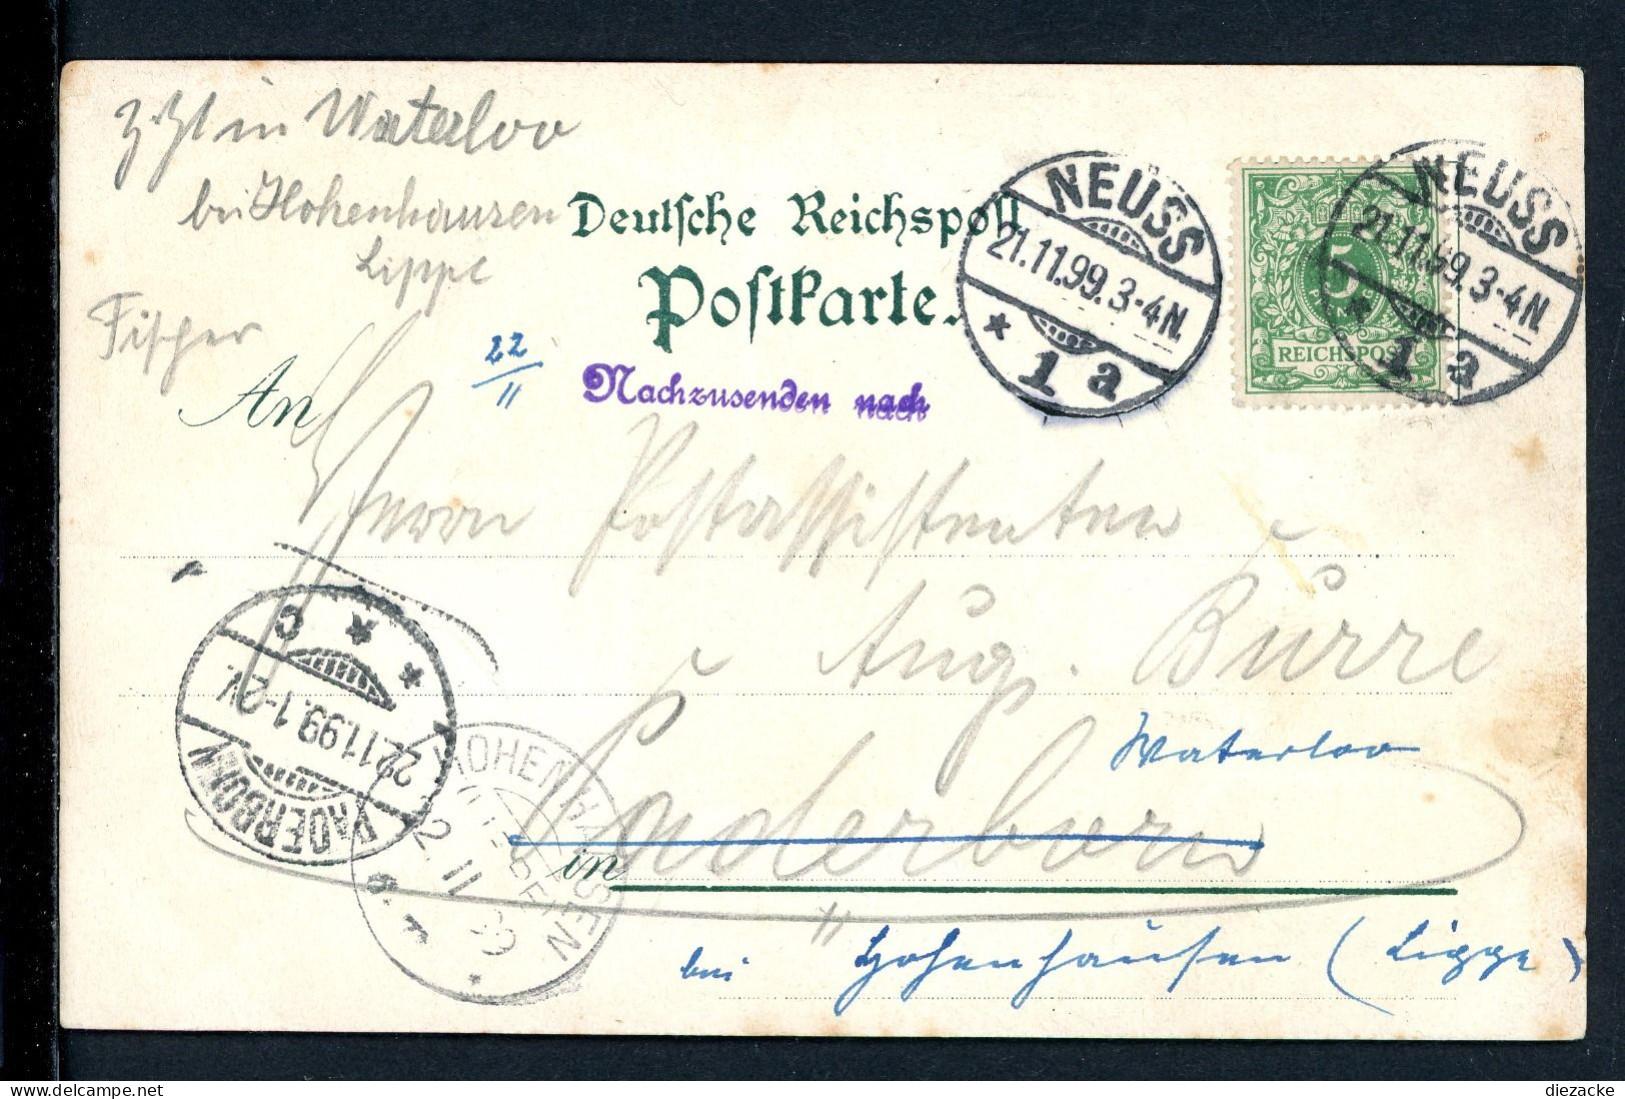 z. Zt in Waterloo
bei Hohenhausen
Lippe
Fischer
Deutsche Reichspost
Postkarte.
NEUSS
21.11.99. 3-4N.
* 1 a
NEUSS
21.11.99. 3-4N.
* 1 a
5
REICHSPOST
22/11
Nachzusenden nach
An
Herrn Postassistenten
Aug. Burre
Waterloo
in Paderborn
bei Hohenhausen (Lippe)
PADERBORN
22.11.99. 1-2V.
* * C
HOHENHAUSEN
diezacke